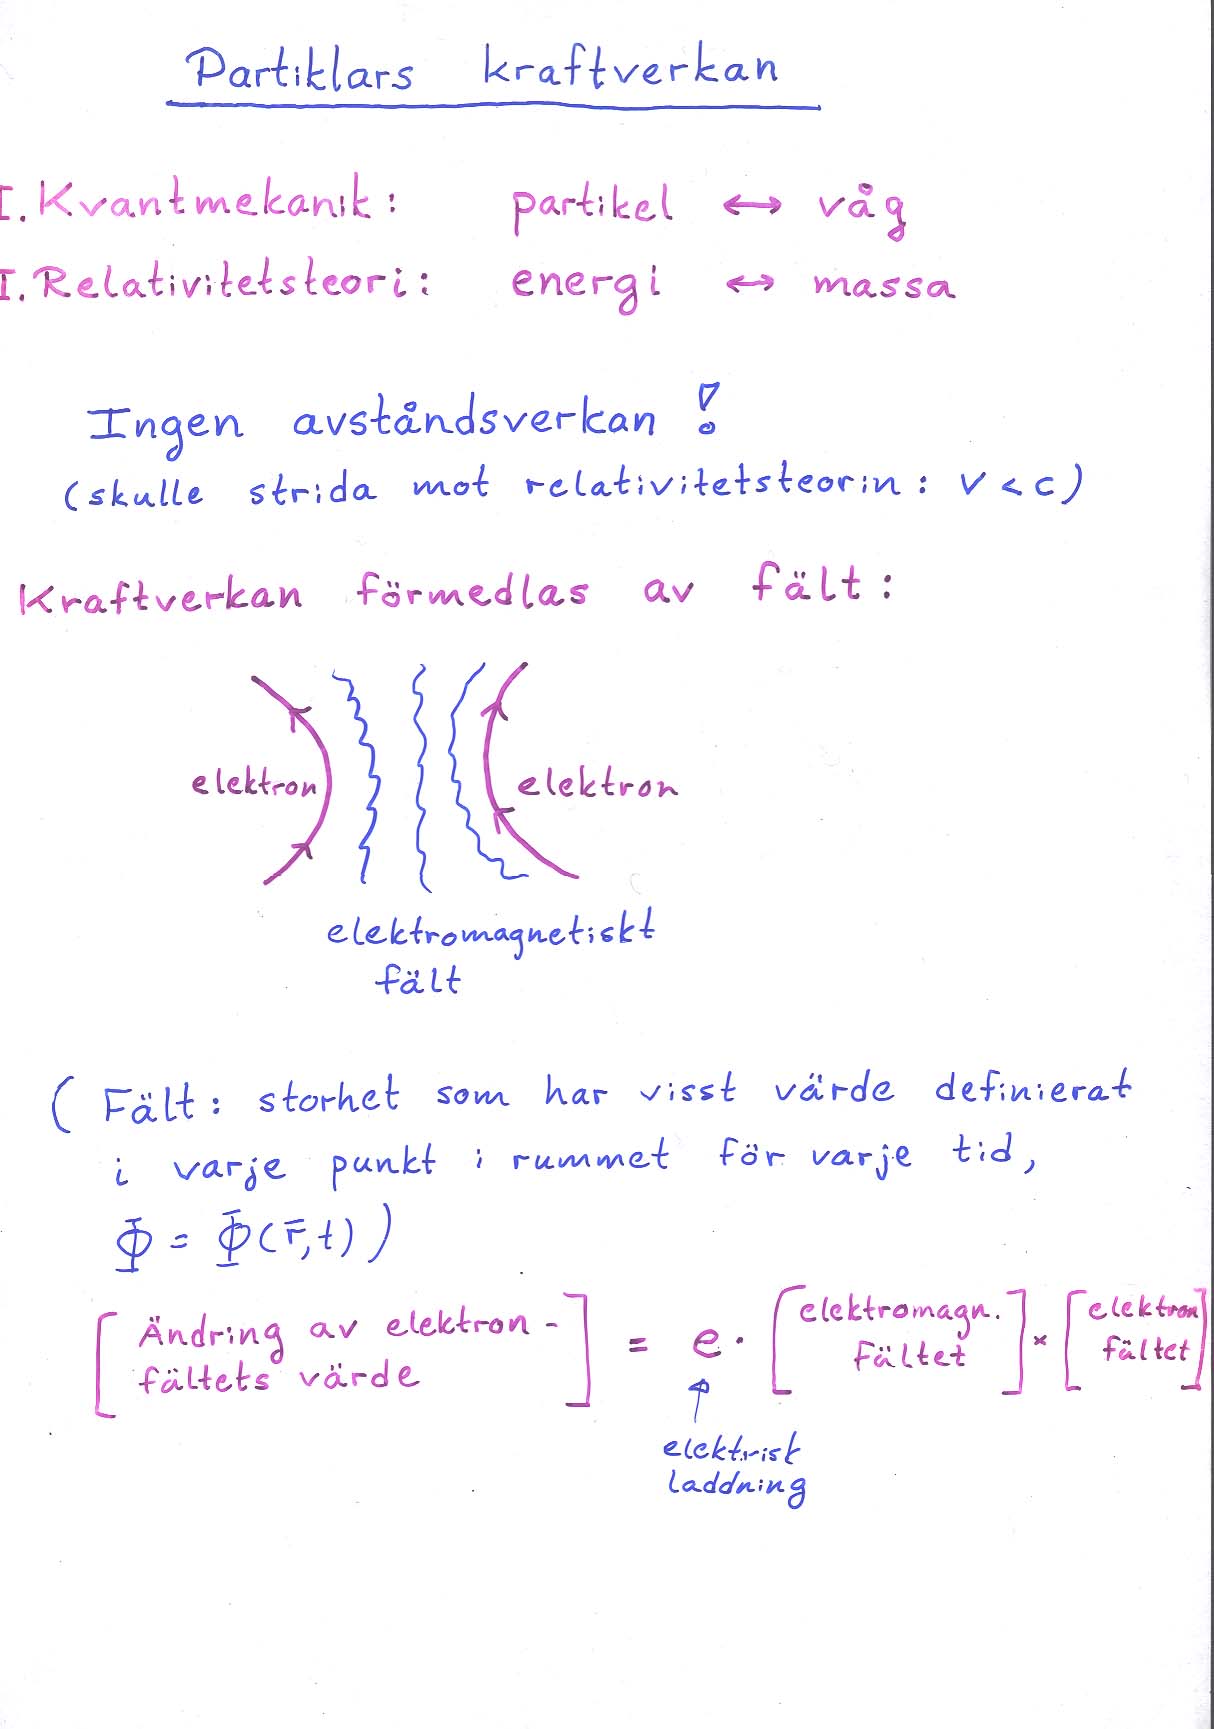 Partiklars kraftverkan
I. Kvantmekanik: partikel ↔ våg
I. Relativitetsteori: energi ↔ massa
Ingen avståndsverkan !
(skulle strida mot relativitetsteorin: v < c)
Kraftverkan förmedlas av fält:
elektron elektron
elektromagnetiskt
fält
( Fält: storhet som har visst värde definierat
i varje punkt i rummet för varje tid,
Φ = Φ(r̄,t) )
[ Ändring av elektron-
fältets värde ] = e · [ elektromagn.
fältet ] × [ elektron
fältet ]
↑
elektrisk
laddning